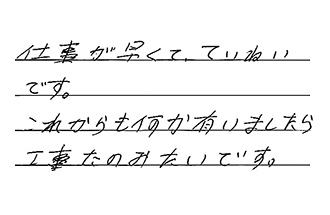 仕事が早くて、ていねい
です。
これからも何か有いましたら
工事たのみたいです。